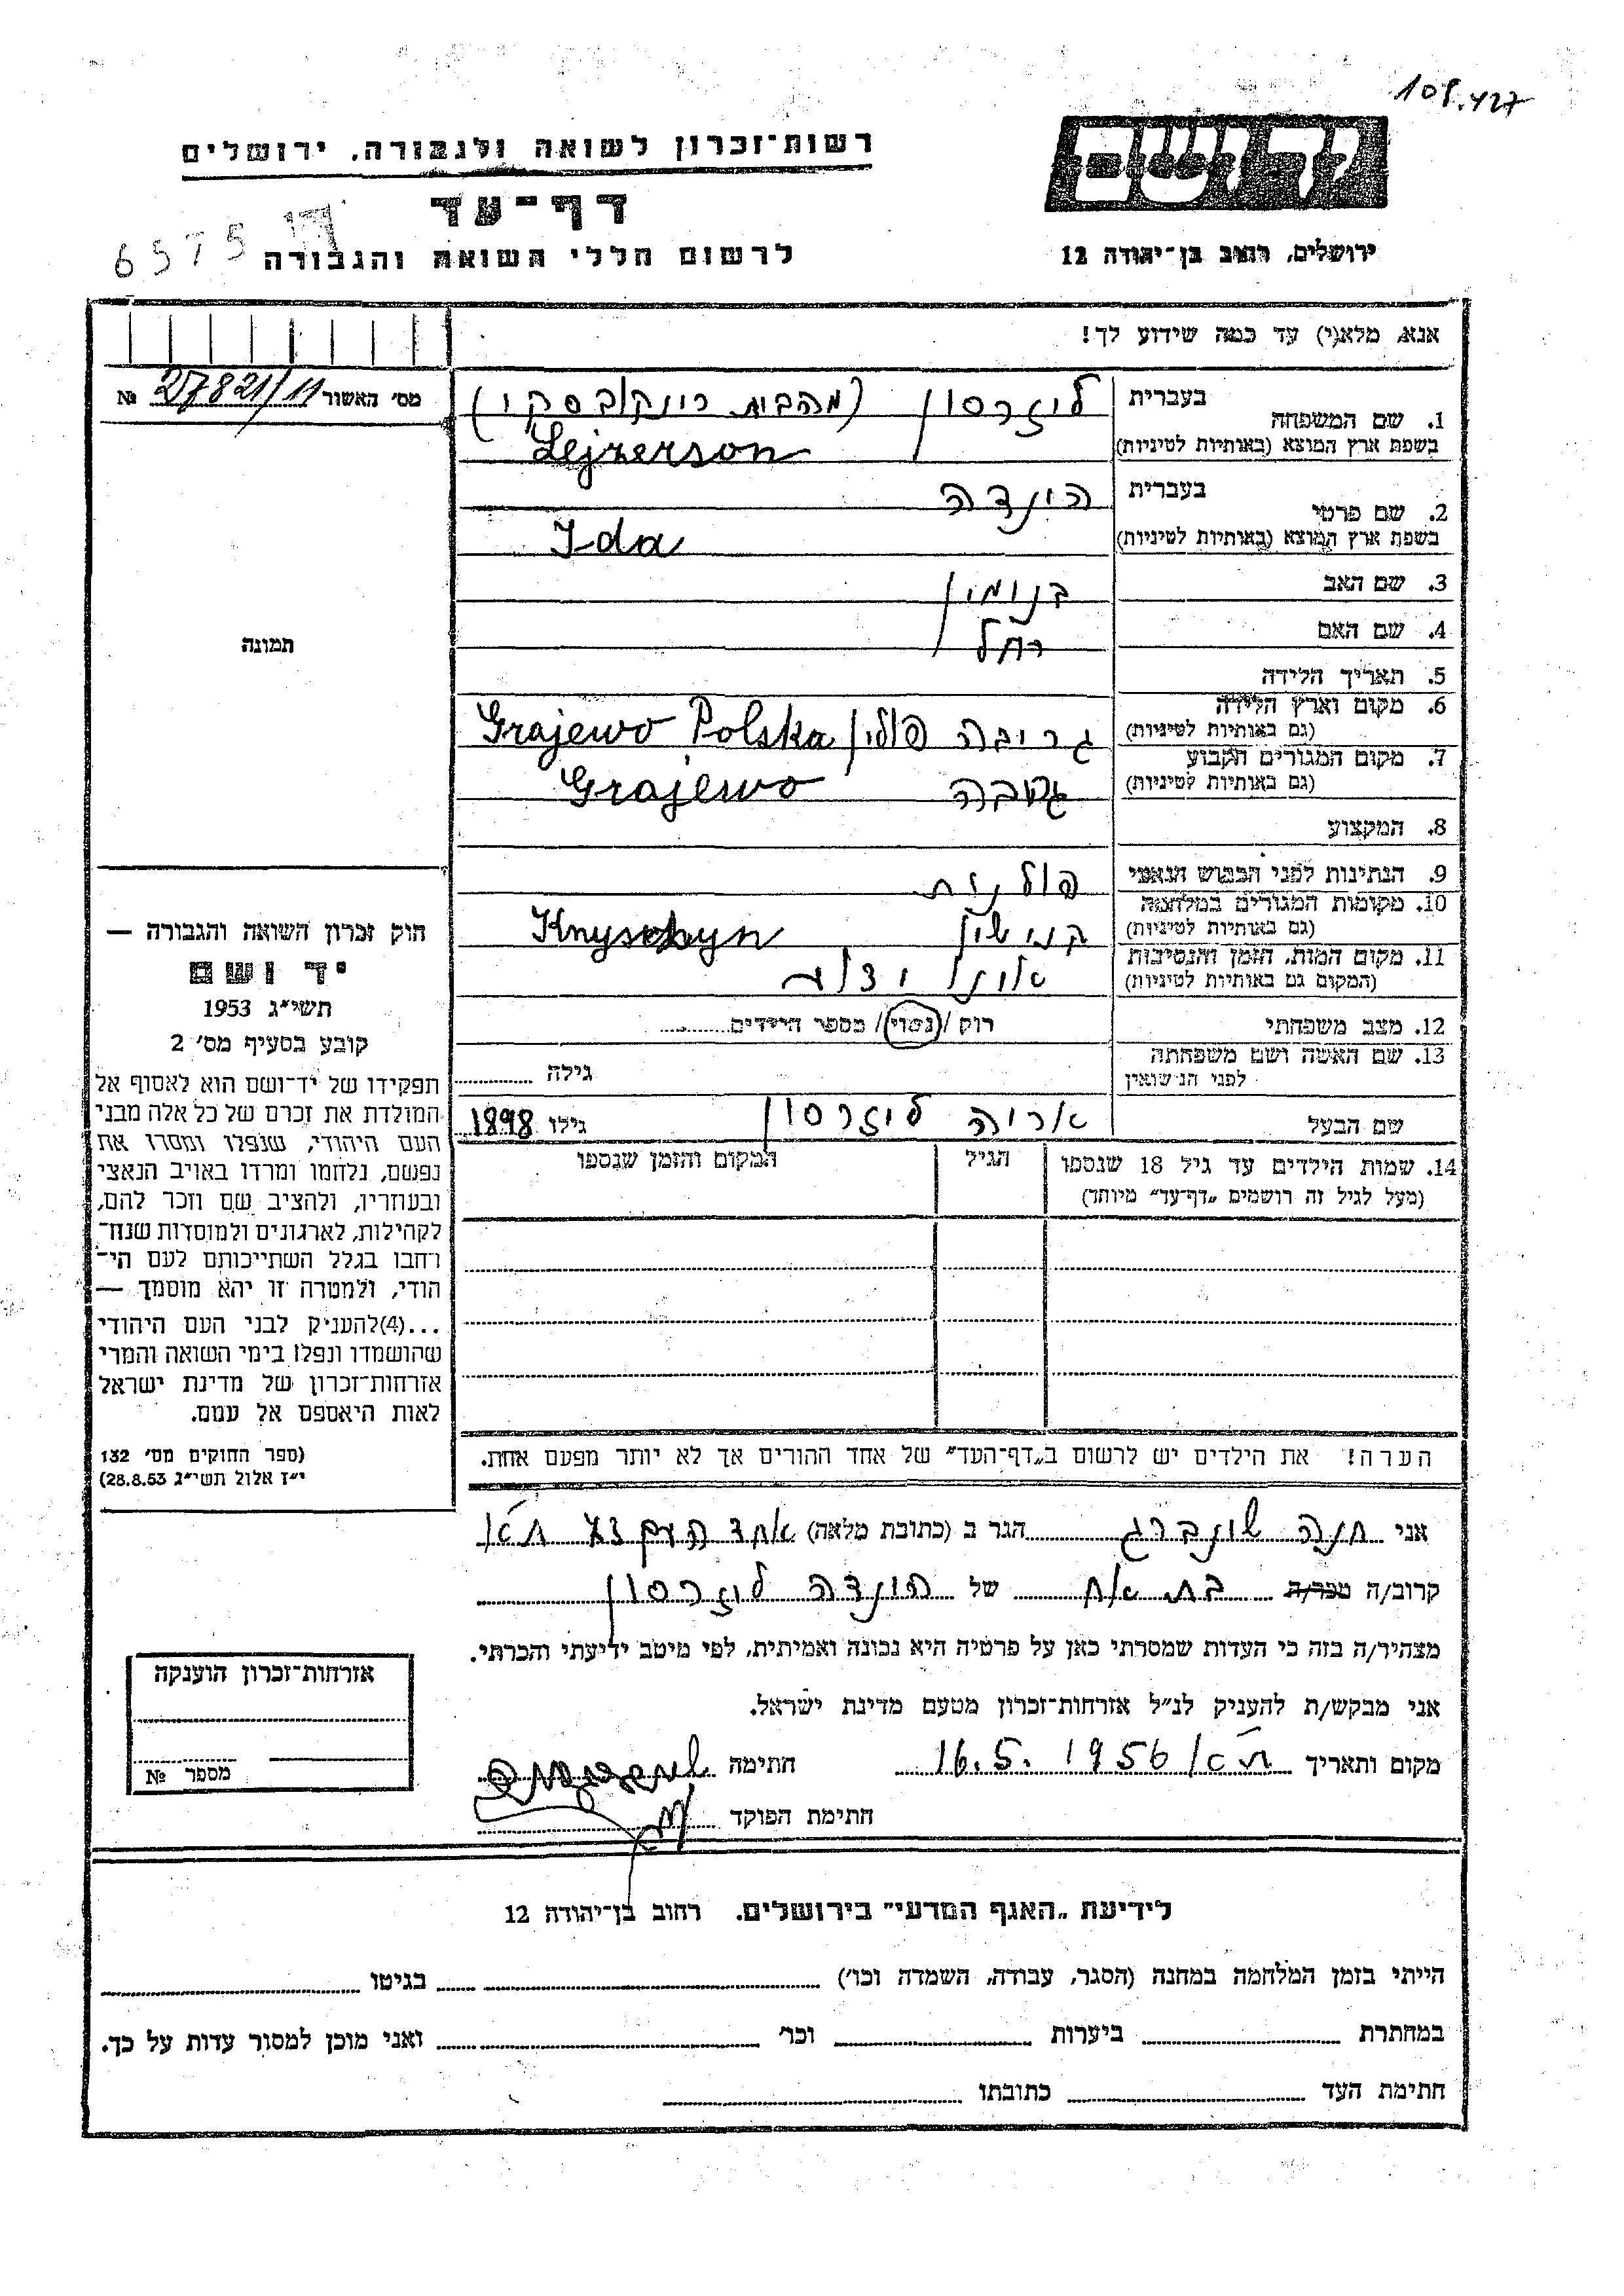 108.427
רשות־זכרון לשואה ולגבורה, ירושלים
דף־עד
לרשום חללי השואה והגבורה
6575
ירושלים, רחוב בן־יהודה 12
אנא, מלא(י) עד כמה שידוע לך!
מס׳ האשור 27821/11 №
תמונה
1. שם המשפחה
בעברית ליזרסון (מהבית
בשפת ארץ המוצא (באותיות לטיניות) Lejzerson
2. שם פרטי
בעברית הינדה
בשפת ארץ המוצא (באותיות לטיניות) Ida
3. שם האב בנימין
4. שם האם רחל
5. תאריך הלידה
6. מקום וארץ הלידה
(גם באותיות לטיניות) גריבה פולין Grajewo Polska
7. מקום המגורים הקבוע
(גם באותיות לטיניות) Grajewo
8. המקצוע
9. הנתינות לפני הכבוש הנאצי פולנית
10. מקומות המגורים במלחמה
(גם באותיות לטיניות) קנישין Knyschyn
11. מקום המות, הזמן והנסיבות
(המקום גם באותיות לטיניות) אינו ידוע
12. מצב משפחתי רוק / נשוי / מספר הילדים
13. שם האשה ושם משפחתה
לפני הנישואין גילה
שם הבעל אריה ליזרסון גילו 1898
14. שמות הילדים עד גיל 18 שנספו הגיל המקום והזמן שנספו
(מעל לגיל זה רושמים „דף־עד” מיוחד)
הערה! את הילדים יש לרשום ב„דף־העד” של אחד ההורים אך לא יותר מפעם אחת.
חוק זכרון השואה והגבורה —
יד ושם
תשי״ג 1953
קובע בסעיף מס׳ 2
תפקידו של יד־ושם הוא לאסוף אל
המולדת את זכרם של כל אלה מבני
העם היהודי, שנפלו ומסרו את
נפשם, נלחמו ומרדו באויב הנאצי
ובעוזריו, ולהציב שם וזכר להם,
לקהילות, לארגונים ולמוסדות שנח־
רחבו בגלל השתייכותם לעם הי־
הודי, ולמטרה זו יהא מוסמך —
...(4)להעניק לבני העם היהודי
שהושמדו ונפלו בימי השואה והמרי
אזרחות־זכרון של מדינת ישראל
לאות היאספם אל עמם.
(ספר החוקים מס׳ 132
י״ז אלול תשי״ג 28.8.53)
אני חנה שונברג הגר ב (כתובת מלאה) אחד העם ת״א
קרוב/ה מכר/ה בת אח של הינדה ליזרסון
מצהיר/ה בזה כי העדות שמסרתי כאן על פרטיה היא נכונה ואמיתית, לפי מיטב ידיעתי והכרתי.
אני מבקש/ת להעניק לנ״ל אזרחות־זכרון מטעם מדינת ישראל.
מקום ותאריך ת״א 16.5.1956 חתימה
חתימת הפוקד
אזרחות־זכרון הוענקה
מספר №
לידיעת „האגף המדעי” בירושלים. רחוב בן־יהודה 12
הייתי בזמן המלחמה במחנה (הסגר, עבודה, השמדה וכו׳) בגיטו
במחתרת ביערות וכו׳ ואני מוכן למסור עדות על כך.
חתימת העד כתובתו